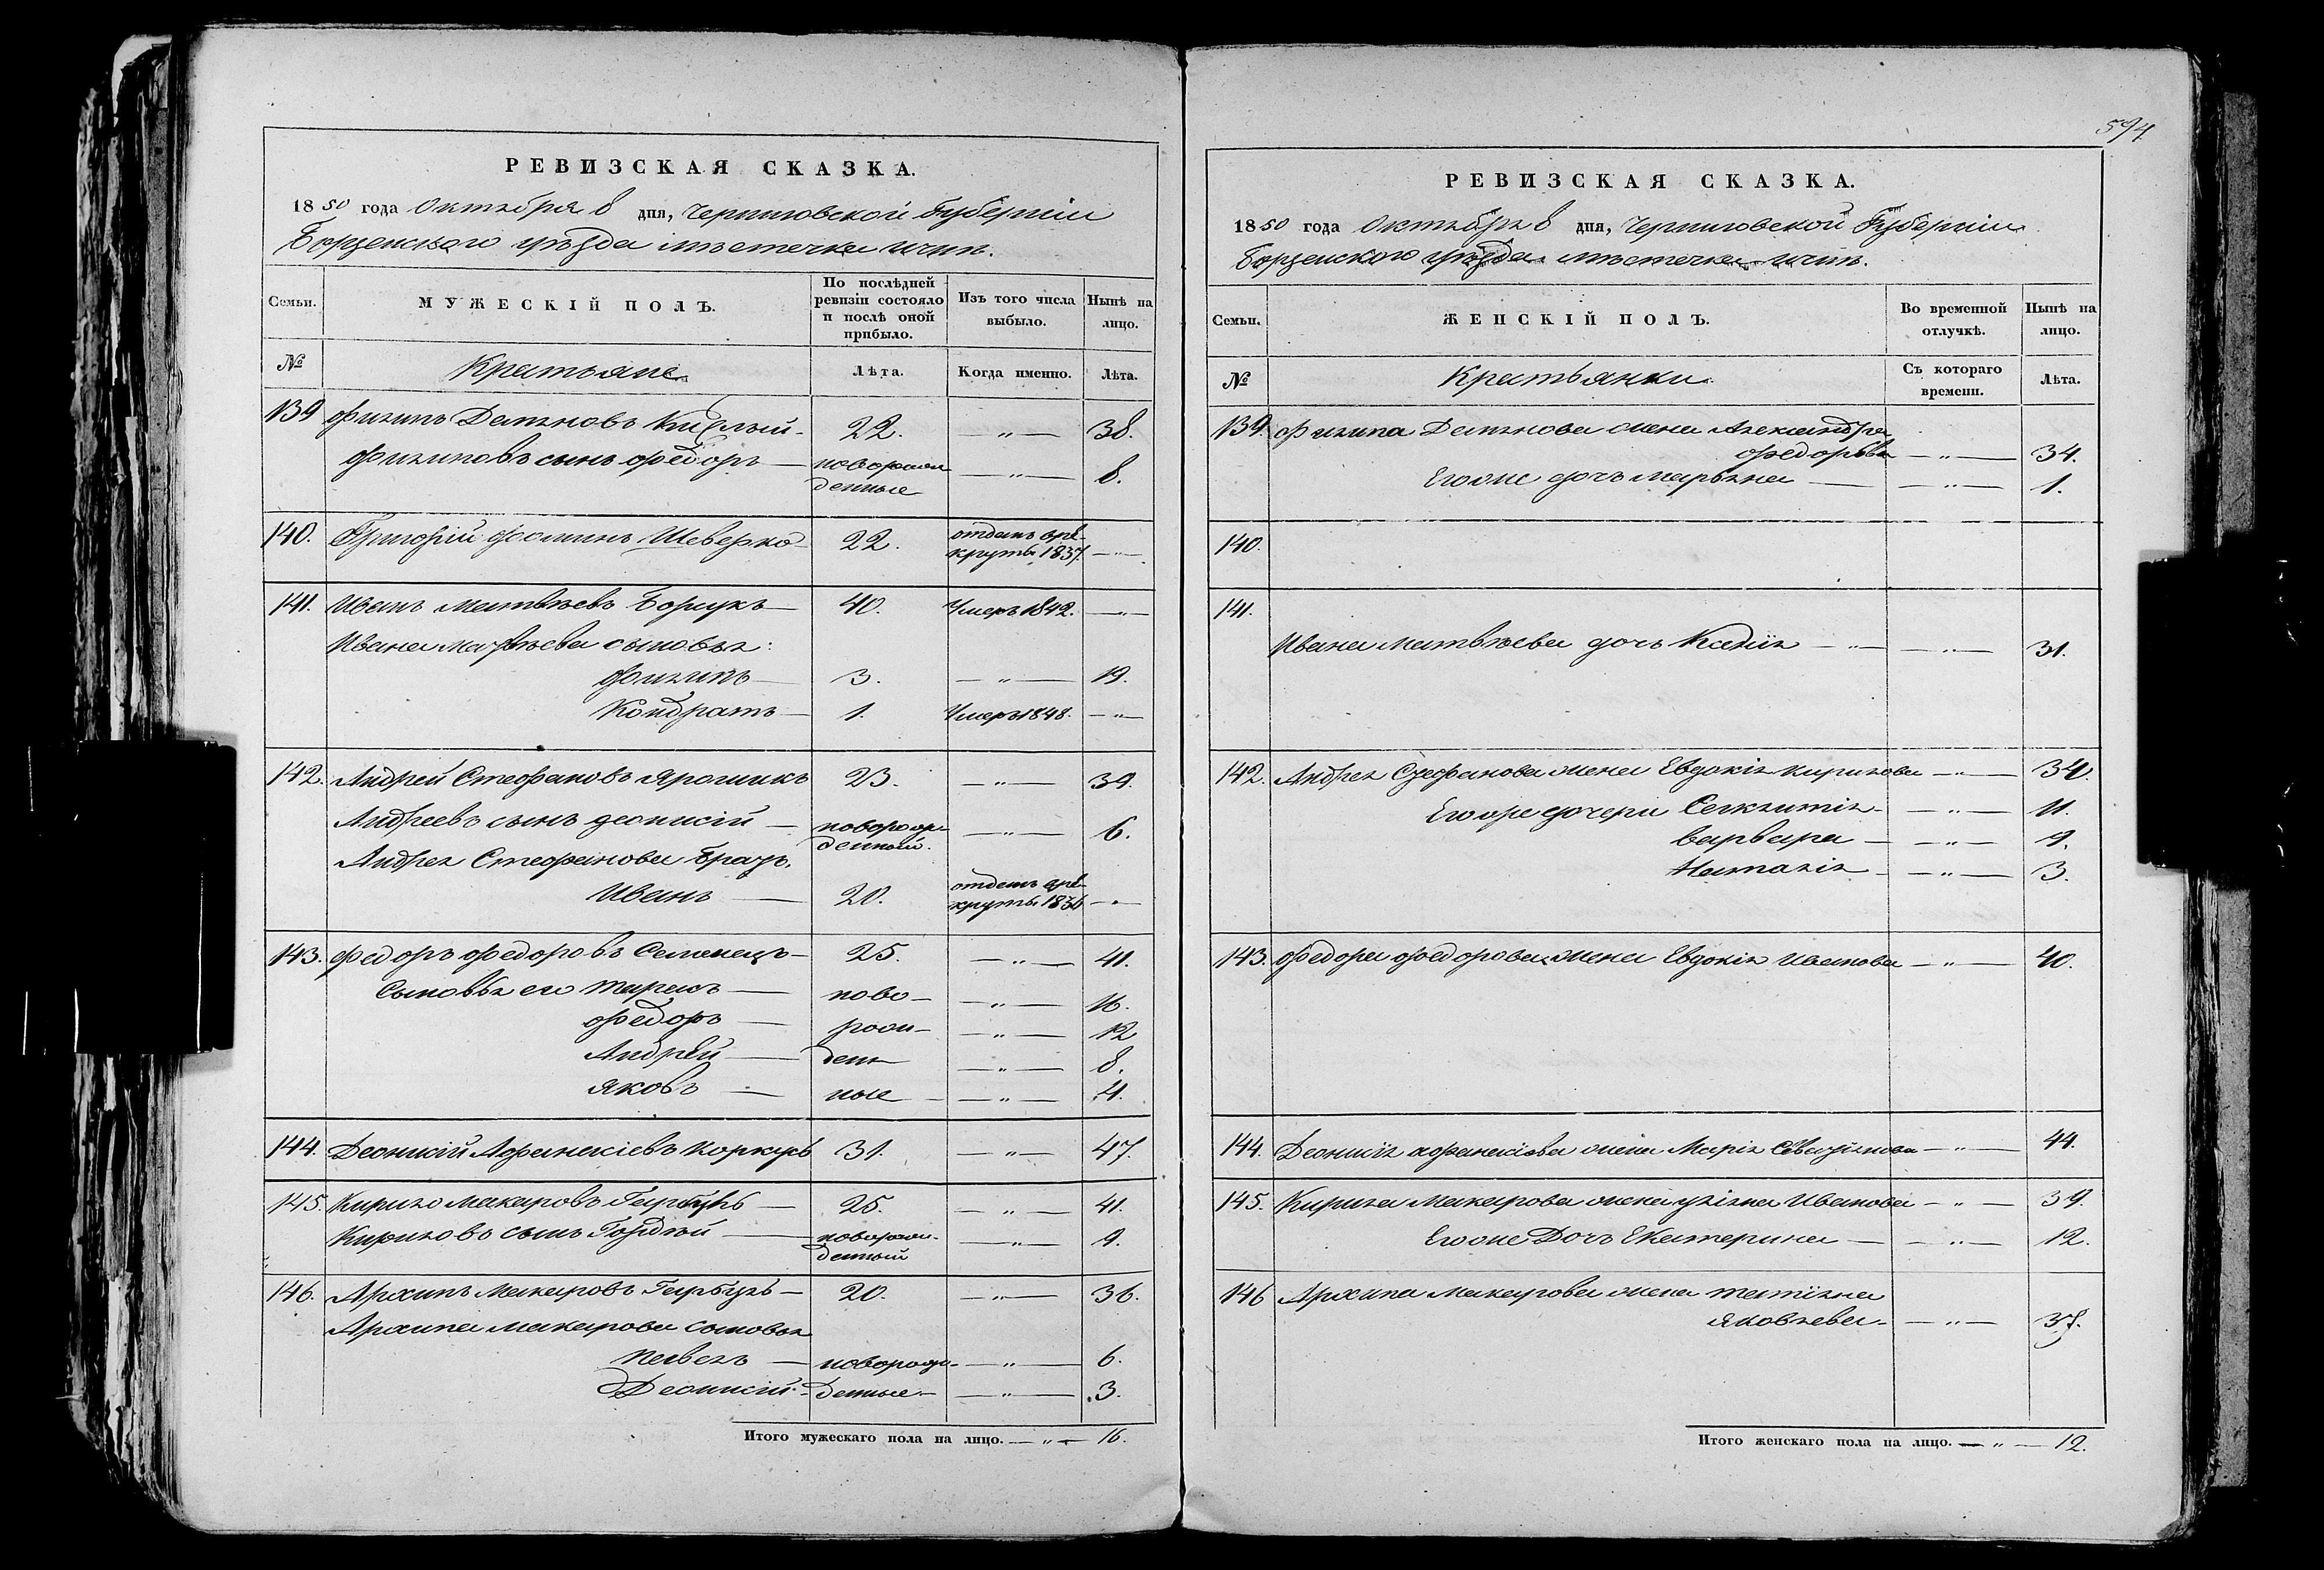 594
РЕВИЗСКАЯ СКАЗКА.
1850 года Октября 8 дня, Черниговской Губерніи
Борзенского уѣзда мѣстечка Ични.
Семьи. МУЖЕСКІЙ ПОЛЪ. По послѣдней ревизіи состояло и послѣ оной прибыло. Изъ того числа выбыло. Нынѣ на лицо.
№ Крестьяне Лѣта. Когда именно. Лѣта.
139 Филипъ Демяновъ 22. — " — 38.
Филиповъ сынъ Федоръ — новорож денные — " — 8.
140. Григорій Фоминъ Шеверко 22. отданъ в ре- круты 1837. — " —
141. Иванъ Матвѣевъ Борщкъ — 40. Умеръ 1842. — " —
Ивана Матвѣева сыновья:
Филипъ — 3. — " — 19.
Кондратъ — 1. Умеръ 1848. — " —
142. Андрей Стефановъ Ярошикъ 23. — " — 39.
Андреевъ сынъ Деонисій — новорож- денный. — " — 6.
Андрея Стефанова братъ
Иванъ — 20. отданъ в ре- круты 1836 — " —
143. Федоръ Федоровъ Семенецъ — 25. — " — 41.
Сыновья его Тарасъ — ново- — " — 16.
Федоръ — рож- — " — 12
Андрей — ден- — " — 8.
Яковъ — ные — " — 4.
144. Деонисій Афанасіевъ 31. — " — 47.
145. Кирило Макаровъ Гарбузъ — 25. — " — 41.
Кириловъ сынъ Гордѣй — новорож- денный — " — 9.
146. Архипъ Макаровъ Гарбузъ — 20. — " — 36.
Архипа Макарова сыновья
Павелъ — новорож- — " — 6.
Деонисій — денные — " — 3.
Итого мужескаго пола на лицо. — " — 16.
РЕВИЗСКАЯ СКАЗКА.
1850 года Октября 8 дня, Черниговской Губерніи
Борзенского уѣзда мѣстечка Ични.
Семьи. ЖЕНСКІЙ ПОЛЪ. Во временной отлучкѣ. Нынѣ на лицо.
№ Крестьянки. Съ котораго времени. Лѣта.
139. Филипа Демянова жена Александра
Федорова — " — 34.
Его же дочь Марьяна — — " — 1.
140.
141.
Ивана Матвѣева дочь — " — 31.
142. Андрея Стефанова жена Евдокія Кирилова — " — 34.
Его же дочери — " — 11.
Варвара — — " — 9.
Наталія — — " — 3.
143. Федора Федорова жена Евдокія Иванова — " — 40.
144. Деонисія Афанасіева жена Марія — " — 44.
145. Кирила Макарова жена Уляна Иванова — " — 39.
Его же Дочь Екатерина — — " — 12.
146 Архипа Макарова жена Татіяна
Яковлева — — " — 37.
Итого женскаго пола на лицо. — " — 12.